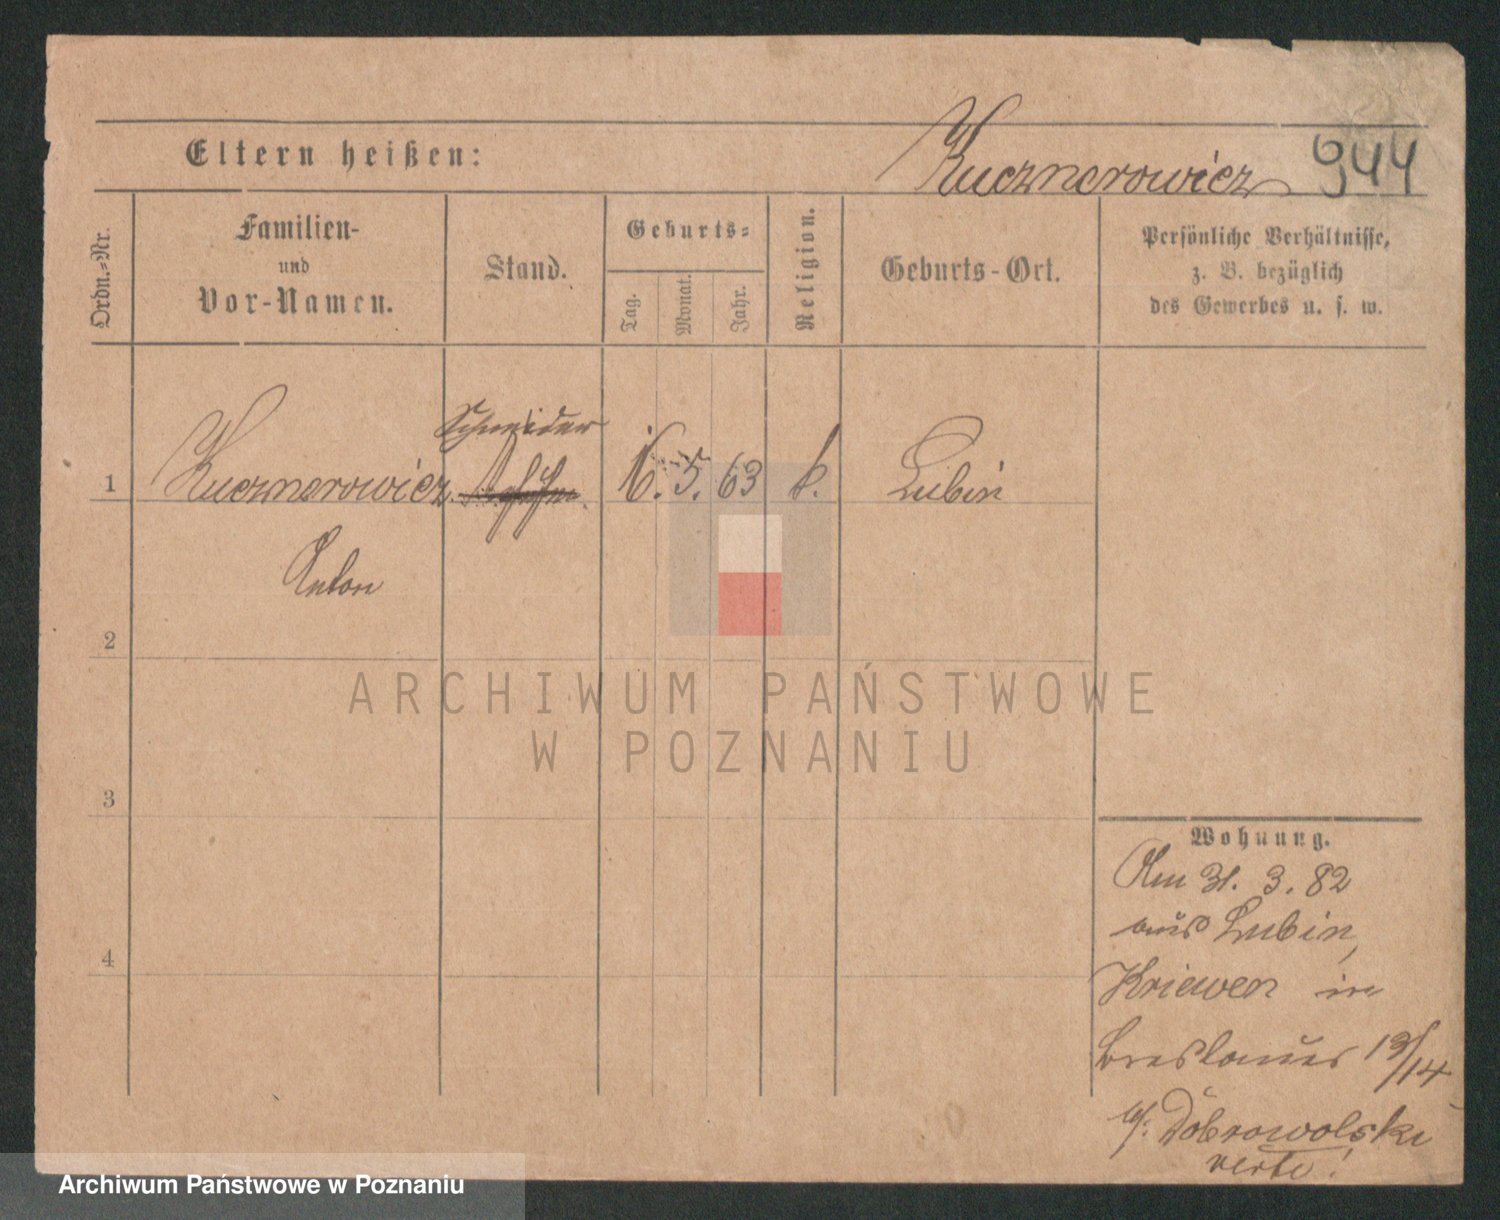 Kucznerowicz 944
Eltern heißen:
Ordn.-Nr.
Familien-
und
Vor-Namen.
Stand.
Geburts-
Tag.
Monat.
Jahr.
Religion.
Geburts-Ort.
Persönliche Verhältnisse,
z. B. bezüglich
des Gewerbes u. s. w.
Schneider
1 Kucznerowicz 16. 5. 63 k. Lubin
Anton
2
3
4
Wohnung.
Am 31. 3. 82
aus Lubin,
Kriewen in
Breslauer 13/14
b/. Dobrowolski
verte!
ARCHIWUM PAŃSTWOWE
W POZNANIU
Archiwum Państwowe w Poznaniu